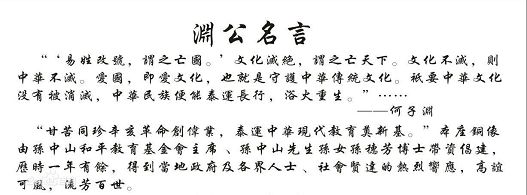 淵公名言
“‘易姓改號，謂之亡國。’文化滅絶，謂之亡天下。文化不滅，則
中華不滅。愛國，即愛文化，也就是守護中華傳統文化。衹要中華文化
没有被消滅，中華民族便能泰運長行，浴火重生。”……
——何子淵
“甘苦同珍辛亥革命創偉業，泰運中華現代教育奠新基。”本座銅像
由孫中山和平教育基金會主席、孫中山先生孫女孫穗芳博士帶資倡建，
歷時一年有餘，得到當地政府及各界人士、社會賢達的熱烈響應，高誼
可風，流芳百世。